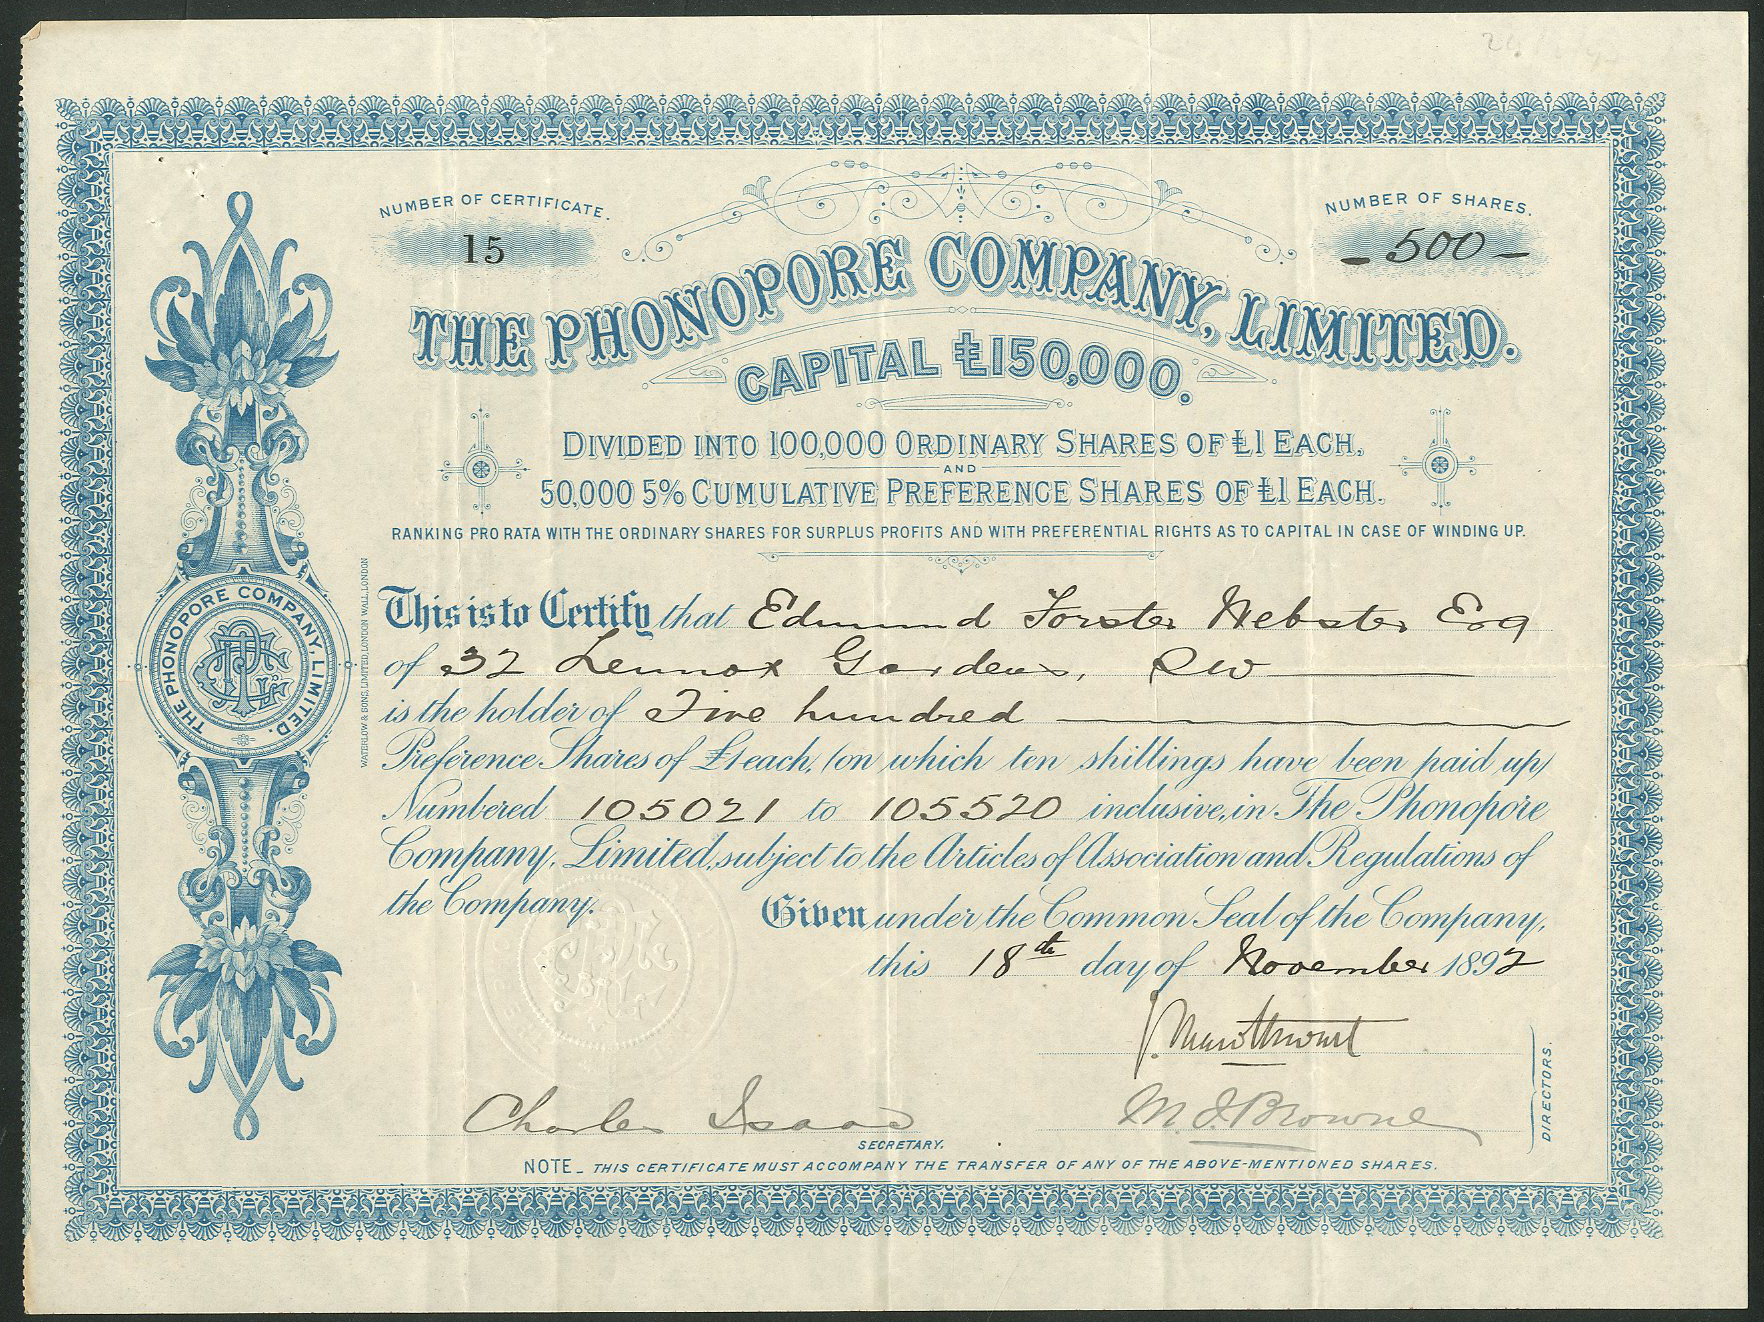 NUMBER OF CERTIFICATE.
15
NUMBER OF SHARES.
500
THE PHONOPORE COMPANY, LIMITED.
CAPITAL £150,000.
DIVIDED INTO 100,000 ORDINARY SHARES OF £1 EACH,
AND
50,000 5% CUMULATIVE PREFERENCE SHARES OF £1 EACH.
RANKING PRO RATA WITH THE ORDINARY SHARES FOR SURPLUS PROFITS AND WITH PREFERENTIAL RIGHTS AS TO CAPITAL IN CASE OF WINDING UP.
This is to Certify that Edmund Forster Webster Esq
of 32 Lennox Gardens, SW
is the holder of Five hundred
Preference Shares of £1 each, (on which ten shillings have been paid up)
Numbered 105021 to 105520 inclusive, in The Phonopore
Company, Limited, subject to the Articles of Association and Regulations of
the Company.
Given under the Common Seal of the Company,
this 18th day of November 1892
M. J. Browne
DIRECTORS.
Charles Isaac
SECRETARY.
NOTE_ THIS CERTIFICATE MUST ACCOMPANY THE TRANSFER OF ANY OF THE ABOVE-MENTIONED SHARES.
THE PHONOPORE COMPANY, LIMITED.
WATERLOW & SONS, LIMITED, LONDON WALL, LONDON